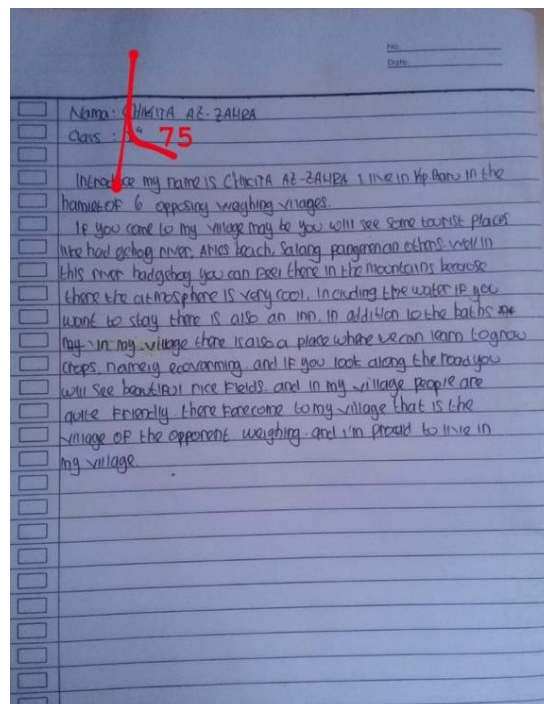 No.
Date.
Nama: CHIKITA AZ-ZAHRA
Class :
75
Introduce my name is CHIKITA AZ-ZAHRA I live in Kp.Baru in the
hamlet of 6 opposing weighing vilages.
If you come to my village may be you will see some tourist places
like had gehog river, Anies beach, Salang pangeran others well in
this river hadgehog you can feel there in the mountains because
there the atmosphere is very cool, Including the water if you
want to stay there is also an inn, in addition to the baths
in my village there is also a place where we can learn to grow
crops, namely ecovarming and if you look along the road you
will see beautiful rice fields and in my village people are
quite friendly there fore come to my village that is the
village of the opponent weighing and i'm proud to live in
my village.